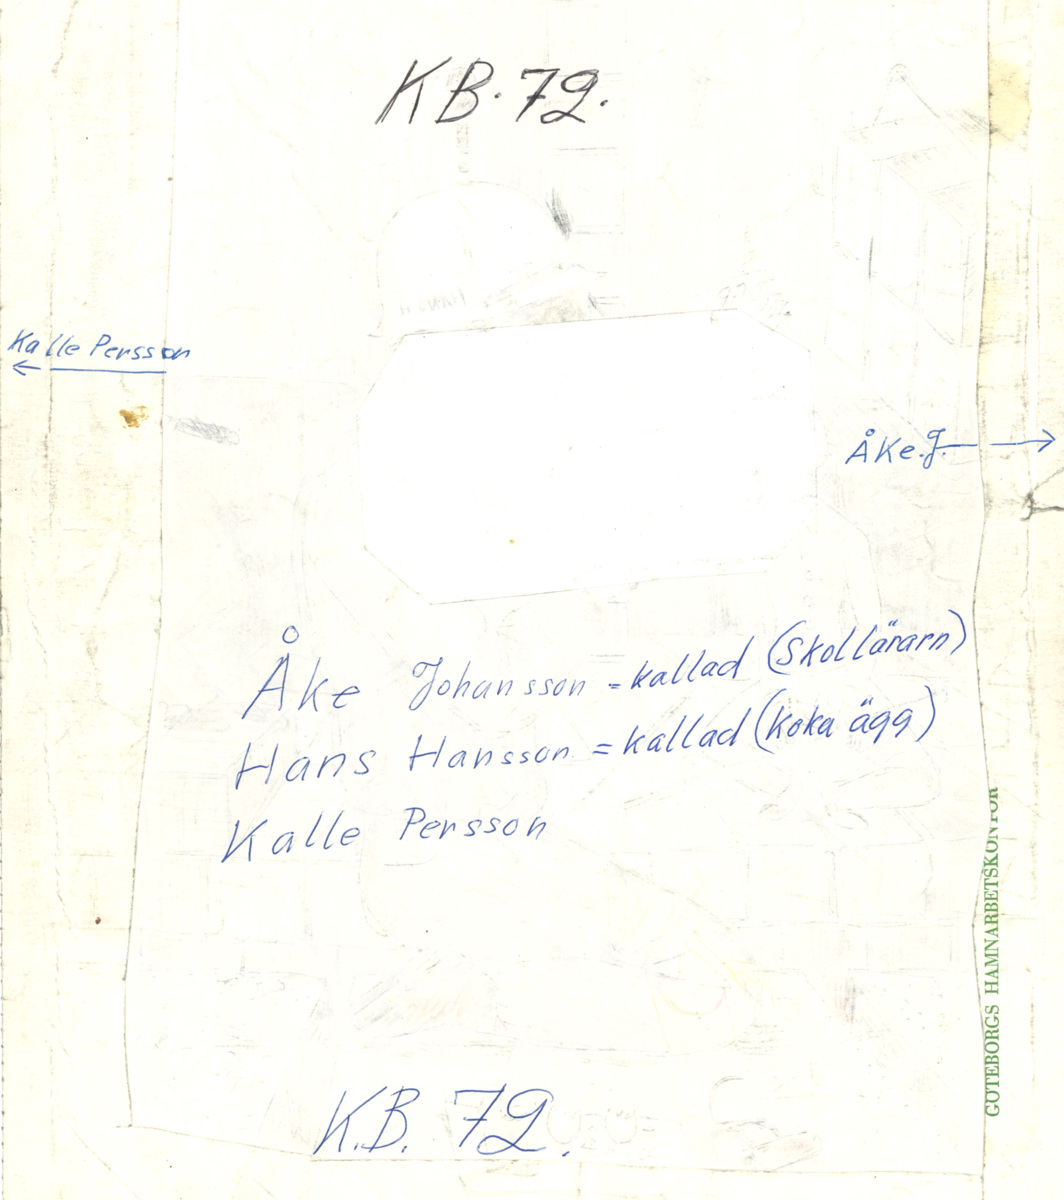 KB. 72.
Kalle Persson
Åke. J.
Åke Johansson = kallad (Skollärarn)
Hans Hansson = kallad (koka ägg)
Kalle Persson
GÖTEBORGS HAMNARBETSKONTOR
K.B. 72.